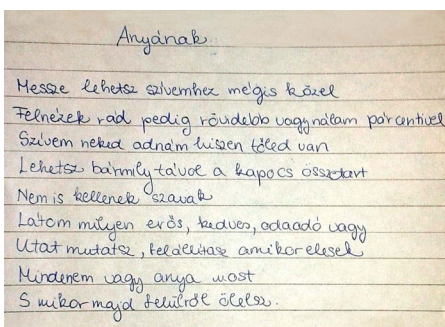 Anyának
Messze lehetsz szívemhez mégis közel
Felnézek rád pedig rövidebb vagy nálam pár centivel
Szívem neked adnám hiszen tőled van
Lehetsz bármily távol a kapocs összetart
Nem is kellenek szavak
Látom milyen erős, kedves, odaadó vagy
Utat mutatsz, felállítasz amikor elesek
Mindenem vagy anya most
S mikor majd felülről ölelsz.